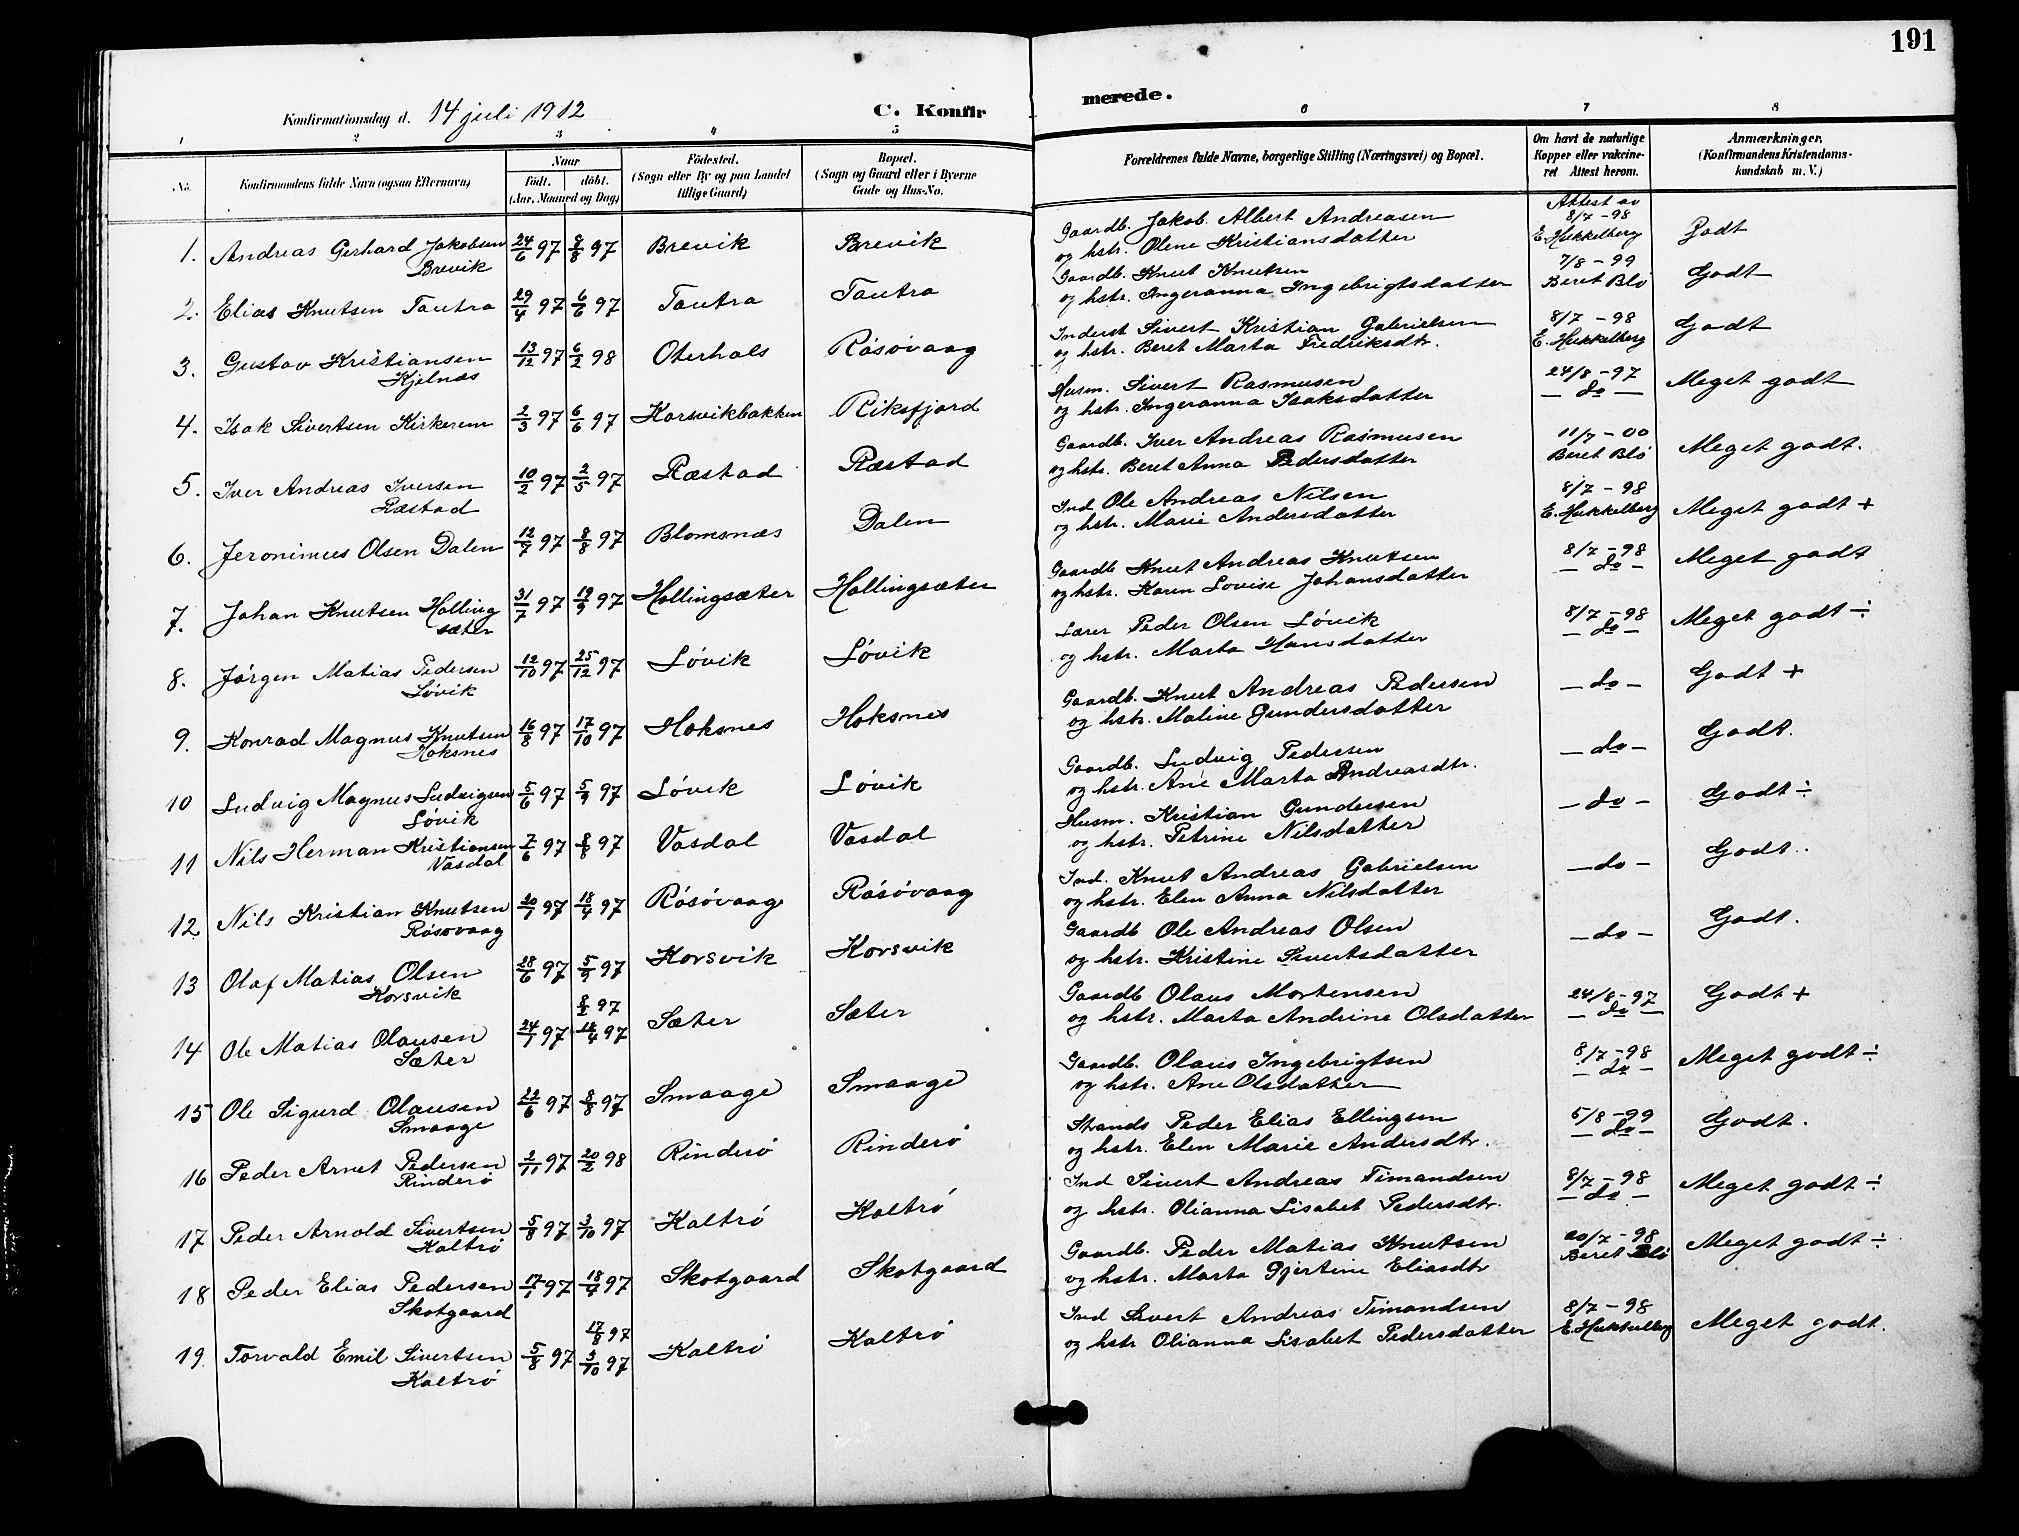 191
Konfirmationsdag d. 14 juli 1912
C. Konfirmerede.
1 2 3 4 5 6 7 8
No. Konfirmandens fulde Navn (ogsaa Efternavn) Naar født. døbt. (Aar, Maaned og Dag) Fødested. (Sogn eller By og paa Landet tillige Gaard) Bopæl. (Sogn og Gaard eller i Byerne Gade og Hus-No. Forældrenes fulde Navne, borgerlige Stilling (Næringsvei) og Bopæl. Om havt de naturlige Kopper eller vakcineret Attest herom. Anmærkninger. (Konfirmandens Kristendomskundskab m. V.)
1. Andreas Gerhard Jakobsen 24/6 97 8/8 97 Brevik Brevik Gaardb. Jakob Albert Andreasen Attest av 8/7-98 Godt
Brevik og hstr. Olene Kristiansdatter E. Hukkelberg
2. Elias Knutsen Tautra 29/4 97 6/6 97 Tautra Tautra Gaardb. Knut Knutsen 7/8-99 Godt
og hstr. Ingeranna Ingebrigtsdatter Beret Blø
3. Gustav Kristiansen 13/12 97 6/2 98 Oterhals Røsøvaag Inderst Sivert Kristian Gabrielsen 8/7-98 Godt
Kjelnæs og hstr. Beret Marta Fredriksdtr. E. Hukkelberg
4. Isak Sivertsen Kirkerem 2/3 97 6/6 97 Korsvikbakken Riksfjord Husm. Sivert Rasmusen 24/8-97 Meget godt
og hstr. Ingeranna Isaksdatter - do -
5. Iver Andreas Iversen 10/2 97 2/5 97 Ræstad Ræstad Gaardb. Iver Andreas Rasmusen 11/7-00 Meget godt.
Ræstad og hstr. Beret Anna Pedersdatter Beret Blø
6. Jeronimus Olsen Dalen 12/7 97 8/8 97 Blomsnæs Dalen Ind Ole Andreas Nilsen 8/7-98 Meget godt +
og hstr. Marie Andersdatter E. Hukkelberg
7. Johan Knutsen Holling 31/7 97 19/9 97 Hollingsæter Hollingsæter Gaardb Knut Andreas Knutsen 8/7-98 Meget godt
sæter og hstr. Karen Lovise Johansdatter - do -
8. Jørgen Matias Pedersen 12/10 97 25/12 97 Løvik Løvik Lærer Peder Olsen Løvik 8/7-98 Meget godt ÷
Løvik og hstr. Marta Hansdatter - do -
9. Konrad Magnus Knutsen 16/8 97 17/10 97 Hoksnes Hoksnes Gaardb. Knut Andreas Pedersen - do - Godt +
Hoksnes og hstr. Maline Gundersdatter
10 Ludvig Magnus Ludvigsen 5/6 97 5/9 97 Løvik Løvik Gaardb. Ludvig Pedersen - do - Godt.
Løvik og hstr. Ane Marta Andreasdtr.
11 Nils Herman Kristiansen 7/6 97 8/8 97 Vasdal Vasdal Husm. Kristian Gundersen - do - Godt ÷
Vasdal og hstr. Petrine Nilsdatter
12. Nils Kristian Knutsen 20/1 97 18/4 97 Røsøvaag Røsøvaag Ind. Knut Andreas Gabrielsen - do - Godt.
Røsøvaag og hstr. Elen Anna Nilsdatter
13 Olaf Matias Olsen 28/6 97 5/9 97 Korsvik Korsvik Gaardb Ole Andreas Olsen - do - Godt.
Korsvik og hstr. Kristine Sivertsdatter
14 Ole Matias Olausen 24/1 97 8/2 97 18/4 97 Sæter Sæter Gaardb Olaus Mortensen 24/8-97 Godt +
Sæter og hstr. Marta Andrine Olsdatter - do -
15 Ole Sigurd Olausen 22/6 97 8/8 97 Smaage Smaage Gaardb. Olaus Ingebrigtsen 8/7-98 Meget godt ÷
Smaage og hstr. Ane Olsdatter - do -
16 Peder Arnet Pedersen 2/11 97 20/2 98 Rinderø Rinderø Strands Peder Elias Ellingsen 5/8-99 Godt.
Rinderø og hstr. Elen Marie Andersdtr. - do -
17 Peder Arnold Sivertsen 5/8 97 3/10 97 Kaltrø Kaltrø Ind Sivert Andreas Timandsen 8/7-98 Meget godt ÷
Kaltrø og hstr. Olianna Lisabet Pedersdtr. - do -
18 Peder Elias Pedersen 17/1 97 18/4 97 Skotgaard Skotgaard Gaardb. Peder Matias Knutsen 20/7-98 Meget godt ÷
Skotgaard og hstr. Marta Gjertine Eliasdtr Beret Blø
19. Torvald Emil Sivertsen 5/8 97 17/8 97 3/10 97 Kaltrø Kaltrø Ind Sivert Andreas Timandsen 8/7-98 Meget godt.
Kaltrø og hstr Olianna Lisabet Pedersdatter E. Hukkelberg